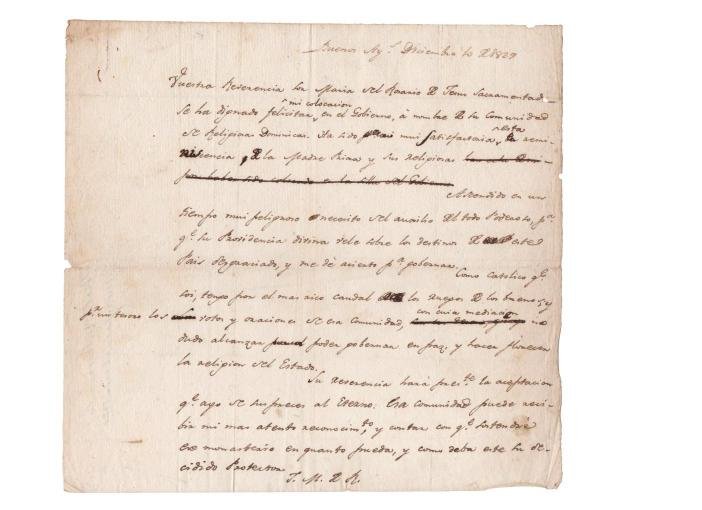 Buenos Ays. Diciembre 10 de 1829
Vuestra Reverencia Sor Maria del Rosario de Jesus Sacramentado
mi colocacion
se ha dignado felicitar, en el Gobierno, à nombre de su Comunidad
esta
de Religiosas Dominicas. Ha sido mui satisfactoria, remi-
niscencia, de la Madre Priora y sus religiosas
por haber sido colocado en la silla del Gobierno
Ascendido en un
tiempo mui peligroso necesito del auxilio del todo Poderoso, pa.
qe. su Providencia divina vele sobre los destinos de este
Pais desgraciado, y me dé acierto pa. gobernar.
Como catolico qe.
soi, tengo por el mas rico caudal los ruegos de los buenos; y
con cuia mediacion
pr. un tesoro los votos y oraciones de esa Comunidad, no
dudo alcanzar poder gobernar en paz, y hacer florecer
la religion del Estado.
Su reverencia hará preste. la aceptacion
qe. ago de sus preces al Eterno: Esa comunidad puede reci-
bir mi mas atento reconocimto., y contar con qe. sostendré
ese monasterio en quanto pueda, y como deba este su de-
cidido Protector
J. M. de R.